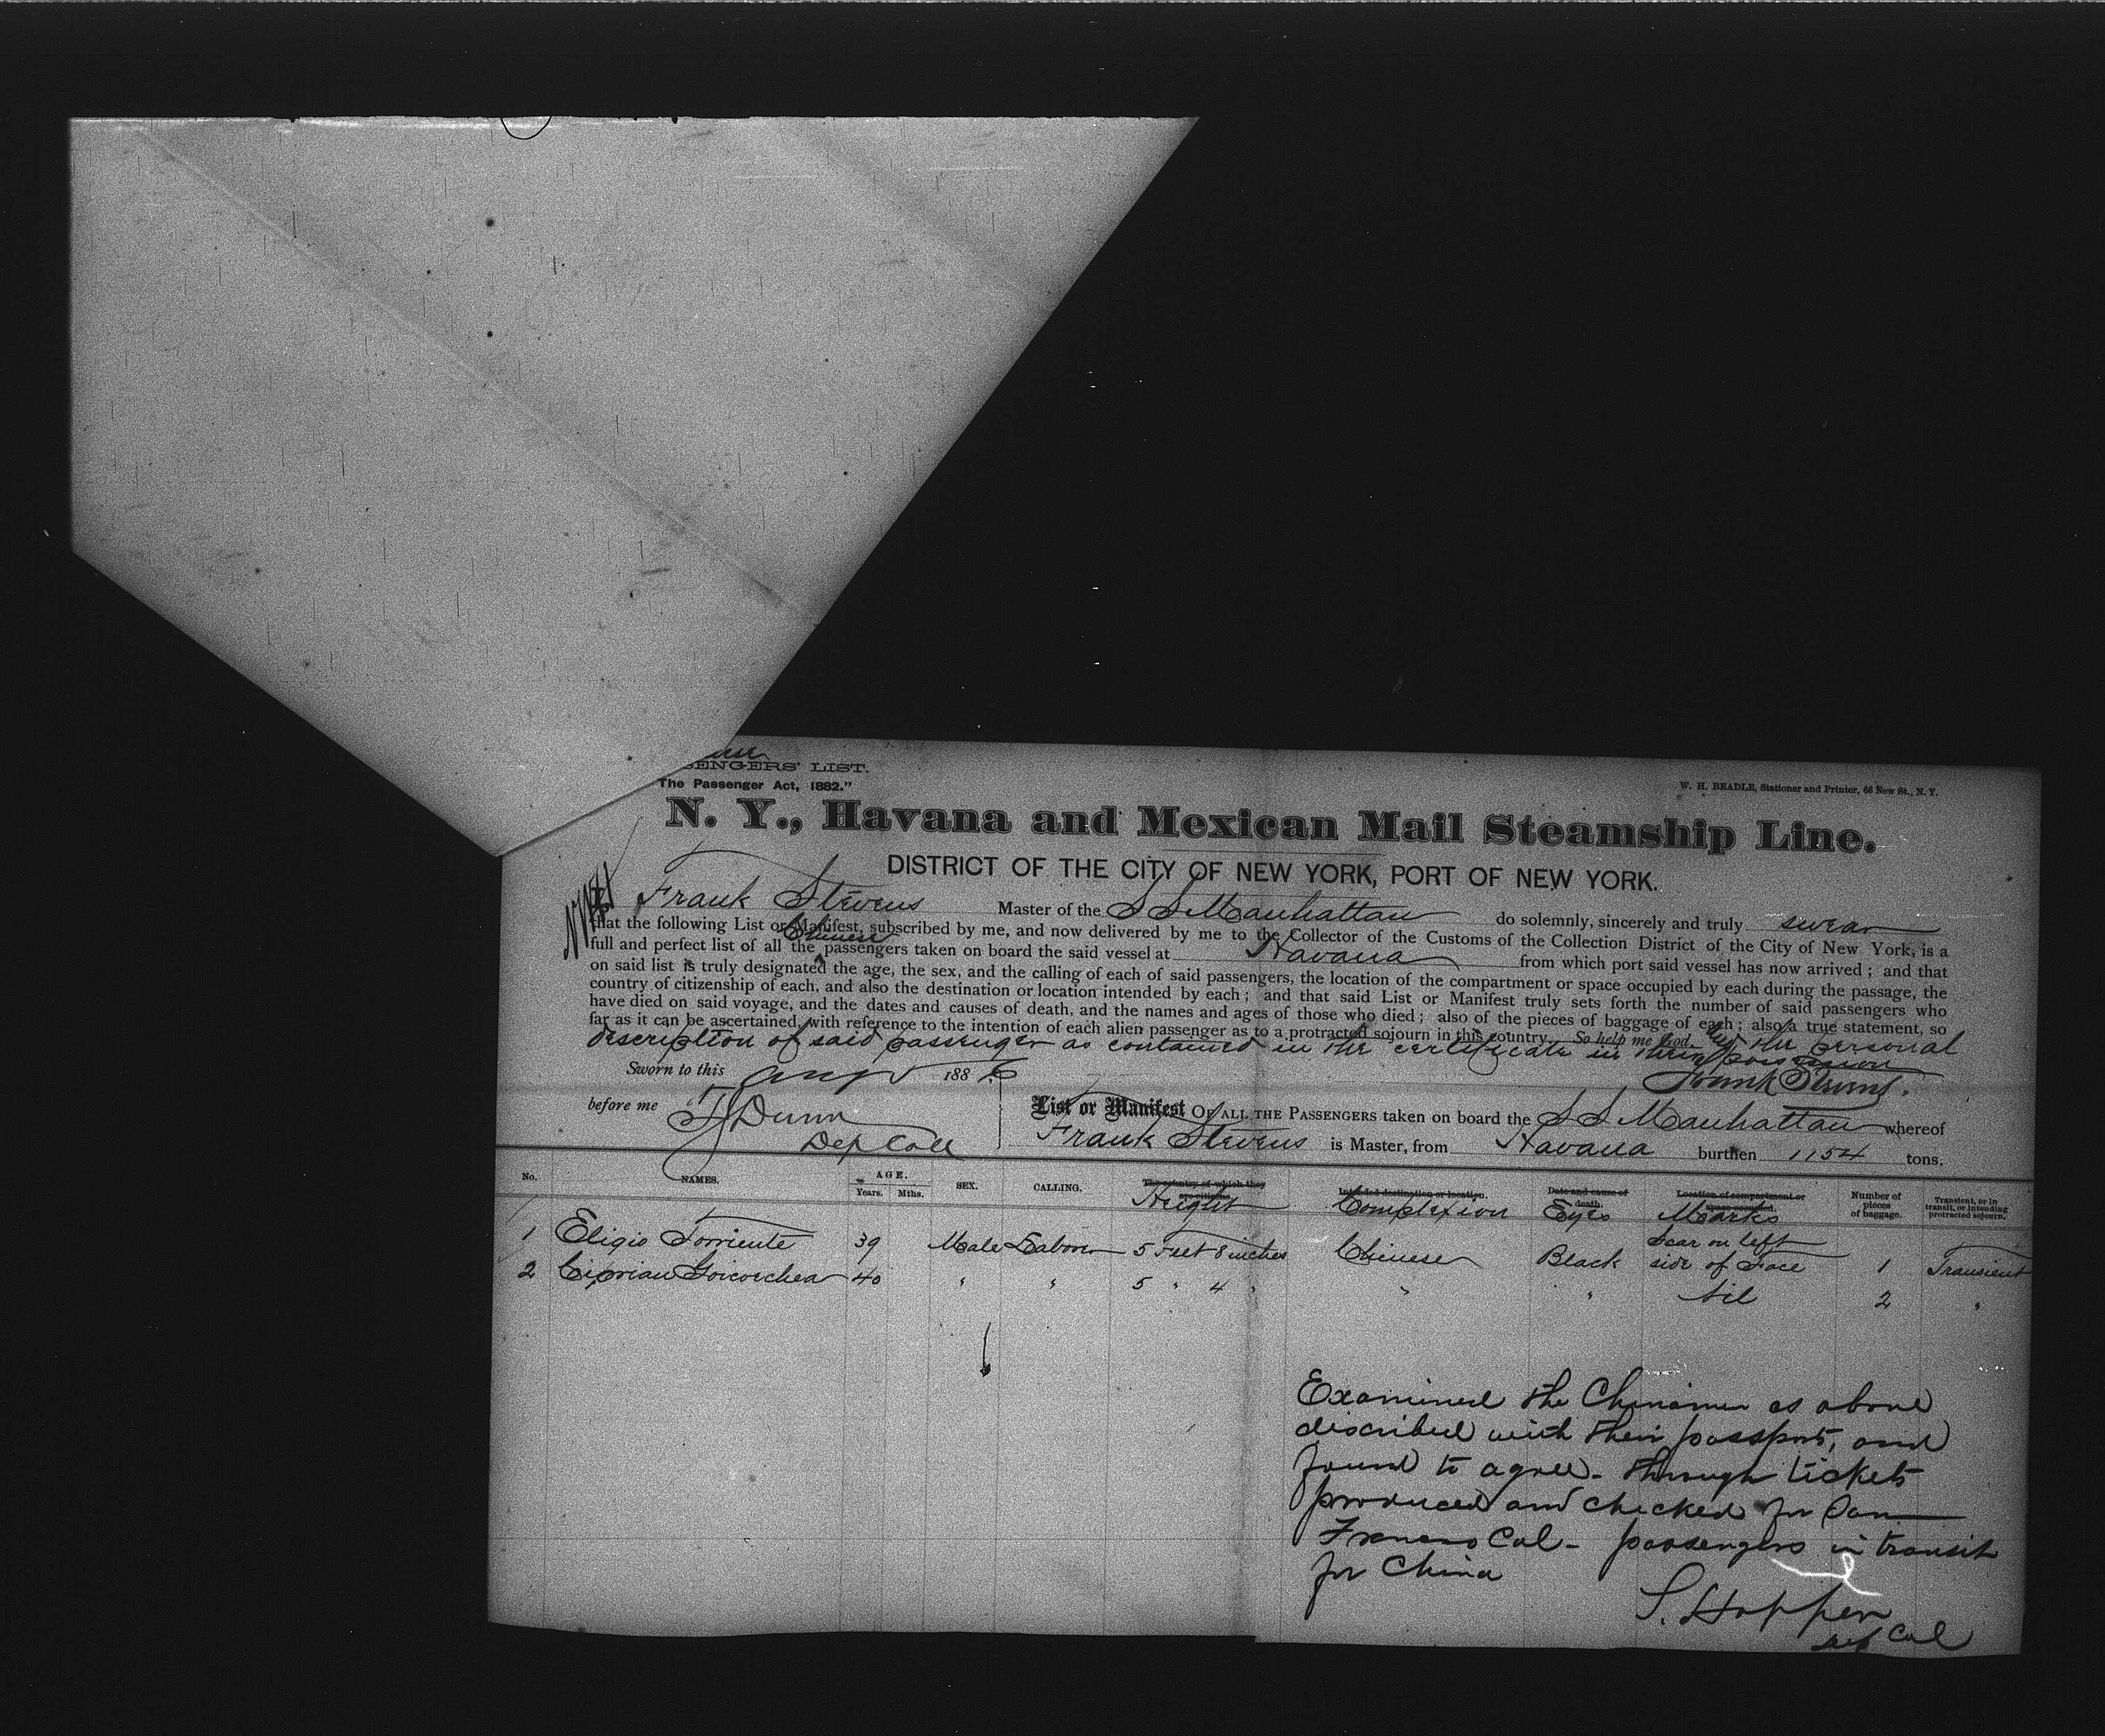 SENGERS' LIST.
The Passenger Act, 1882."
W. H. BEADLE, Stationer and Printer, 66 New St., N. Y.
N. Y., Havana and Mexican Mail Steamship Line.
DISTRICT OF THE CITY OF NEW YORK, PORT OF NEW YORK.
Frank Stevens Master of the S S Manhattan do solemnly, sincerely and truly swear
that the following List or Manifest, subscribed by me, and now delivered by me to the Collector of the Customs of the Collection District of the City of New York, is a
full and perfect list of all the Chinese passengers taken on board the said vessel at Havana from which port said vessel has now arrived; and that
on said list is truly designated the age, the sex, and the calling of each of said passengers, the location of the compartment or space occupied by each during the passage, the
country of citizenship of each, and also the destination or location intended by each; and that said List or Manifest truly sets forth the number of said passengers who
have died on said voyage, and the dates and causes of death, and the names and ages of those who died; also of the pieces of baggage of each; also a true statement, so
far as it can be ascertained, with reference to the intention of each alien passenger as to a protracted sojourn in this country. So help me God. the personal
description of said passenger as contained in the certificate in their possession
Sworn to this Aug 5 1886
Frank Stevens.
before me T J Dunn
Dep Coll
List or Manifest OF ALL THE PASSENGERS taken on board the S S Manhattan whereof
Frank Stevens is Master, from Havana burthen 1154 tons.
No. NAMES. AGE. Years. Mths. SEX. CALLING. The country of which they are citizens. Height Intended destination or location. Complexion Date and cause of death. Eyes Location of compartment or space occupied. Marks Number of pieces of baggage. Transient, or in transit, or intending protracted sojourn.
1 Eligio Torriente 39 Male Laborer 5 feet 8 inches Chinese Black Scar on left side of Face 1 Transient
2 Ciprian Goicochea 40 " " 5 " 4 " " " Nil 2 "
Examined the Chinamen as above
discribed with their passport, and
found to agree - through tickets
produced and checked for San
Francisco Cal - passengers in transit
for China
S. Hopper
Dep Col